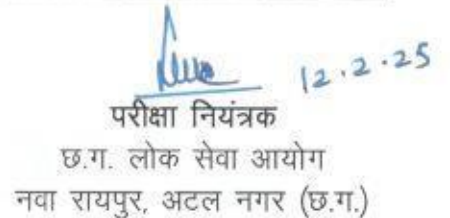 12.2.25
परीक्षा नियंत्रक
छ.ग. लोक सेवा आयोग
नवा रायपुर, अटल नगर (छ.ग.)